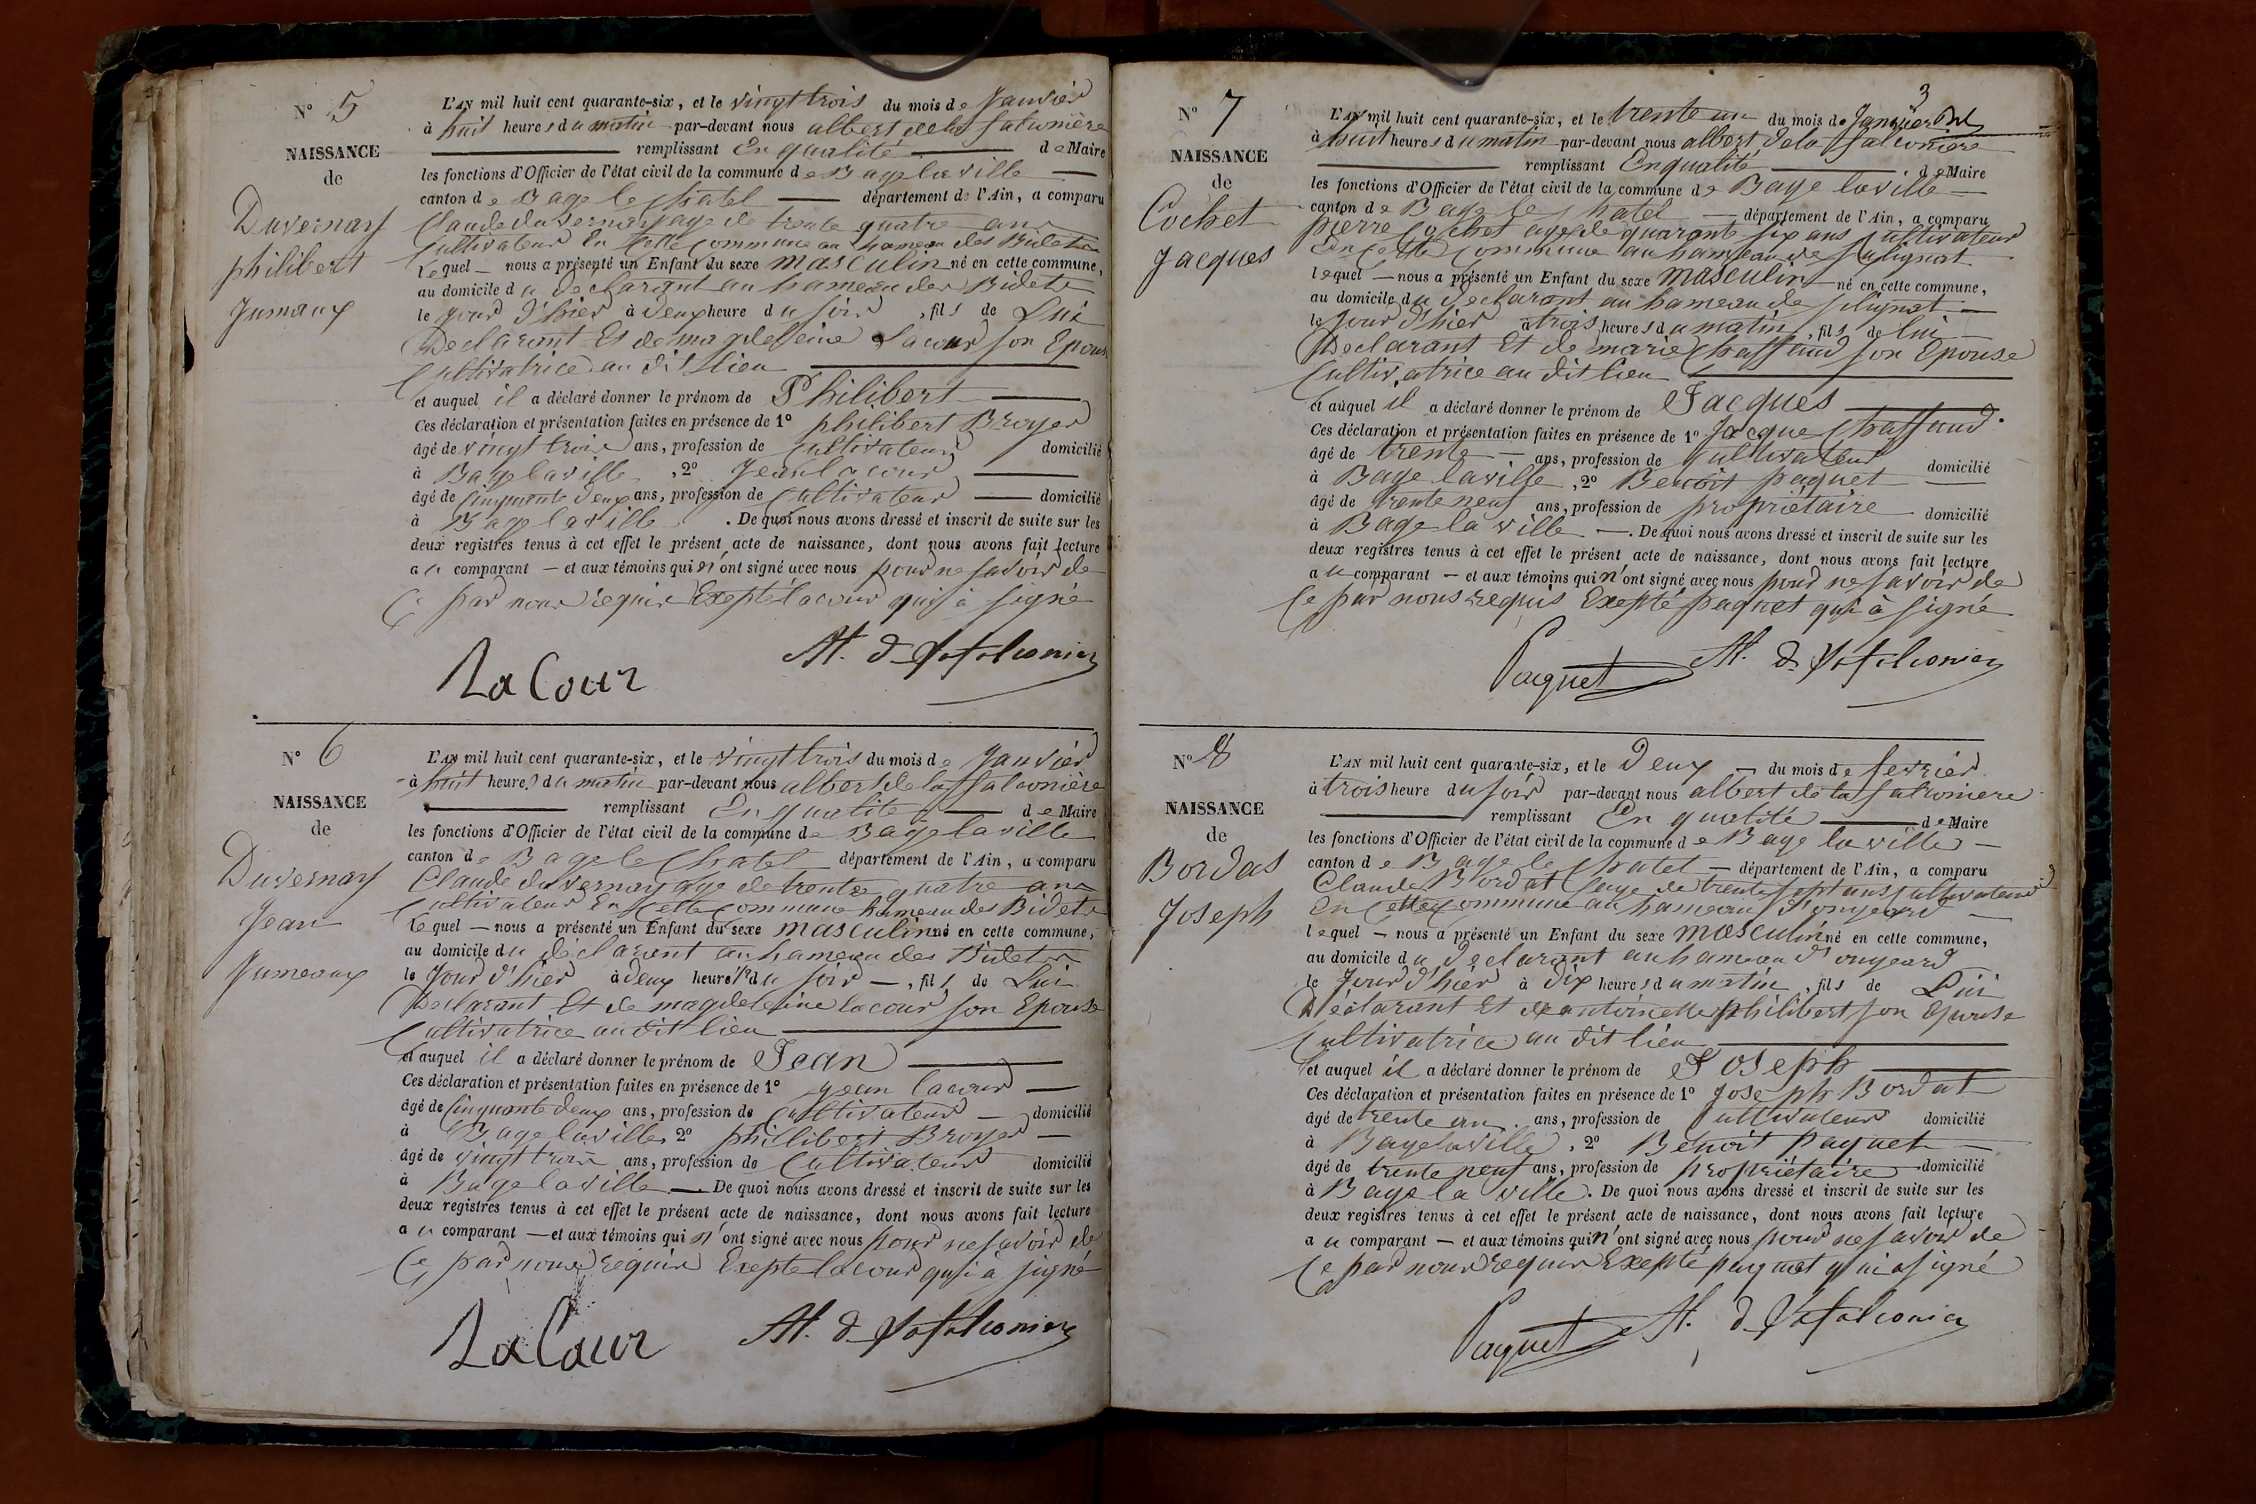 N° 5
NAISSANCE
de
Duvernay
philibert
Jumeaux
L'AN mil huit cent quarante-six, et le vingt trois du mois de Janvier
à huit heures du matin par-devant nous albert de la falconière
remplissant En qualité de Maire
les fonctions d'Officier de l'état civil de la commune de Bage la ville
canton de Bage le Chatel département de l'Ain, a comparu
Claude duvernay age de trente quatre ans
Cultivateur En Cette Commune au hameau des Bidets
Lequel nous a présenté un Enfant du sexe masculin né en cette commune,
au domicile du declarant au hameau des Bidets
le jour d'hier à deux heure du soir, fils de Lui
Declarant Et de magdeleine Lacour son Epouse
Cultivatrice au dit lieu
et auquel il a déclaré donner le prénom de Philibert
Ces déclaration et présentation faites en présence de 1° philibert Broyer
âgé de vingt trois ans, profession de Cultivateur domicilié
à Bage la ville, 2° Jean lacour
âgé de Cinquante deux ans, profession de Cultivateur domicilié
à Bage la ville. De quoi nous avons dressé et inscrit de suite sur les
deux registres tenus à cet effet le présent acte de naissance, dont nous avons fait lecture
au comparant et aux témoins qui n'ont signé avec nous pour ne savoir de
Ce par nous requis Exepté lacour qui à signé
La Cour
At. d. lafalconier
N° 6
NAISSANCE
de
Duvernay
Jean
Jumeaux
L'AN mil huit cent quarante-six, et le vingt trois du mois de Janvier
à huit heures du matin par-devant nous albert de la falconière
remplissant En qualité de Maire
les fonctions d'Officier de l'état civil de la commune de Bage la ville
canton de Bage le Chatel département de l'Ain, a comparu
Claude duvernay age de trente quatre ans
Cultivateur En Cette Commune hameau des Bidets
Lequel nous a présenté un Enfant du sexe masculin né en cette commune,
au domicile du déclarant au hameau des Bidets
le Jour d'hier à deux heure 1/2 du soir, fils de Lui
Declarant Et de magdeleine lacour son Epouse
Cultivatrice au dit lieu
et auquel il a déclaré donner le prénom de Jean
Ces déclaration et présentation faites en présence de 1° jean lacour
âgé de Cinquante deux ans, profession de Cultivateur domicilié
à Bage la ville, 2° phillibert Broyer
âgé de vingt trois ans, profession de Cultivateur domicilié
à Bage la ville De quoi nous avons dressé et inscrit de suite sur les
deux registres tenus à cet effet le présent acte de naissance, dont nous avons fait lecture
au comparant et aux témoins qui n'ont signé avec nous pour ne savoir de
Ce par nous requis Exepté lacour qui à signé
La Cour
At. d. lafalconier
3
N° 7
NAISSANCE
de
Cochet
Jacques
L'AN mil huit cent quarante-six, et le trente un du mois de Janvier
à huit heures du matin par-devant nous albert de la falconiere
remplissant En qualité de Maire
les fonctions d'Officier de l'état civil de la commune de Bage la ville
canton de Bage le Chatel département de l'Ain, a comparu
pierre Cochet age de quarante six ans Cultivateur
En Cette Commune au hameau de
lequel nous a présenté un Enfant du sexe masculin né en cette commune,
au domicile du declarant au hameau de
le Jour d'hier à trois heures du matin, fils de lui
Declarant Et de marie Chaffaud son Epouse
Cultivatrice au dit lieu
et auquel il a déclaré donner le prénom de Jacques
Ces déclaration et présentation faites en présence de 1° Jacque Chaffaud
âgé de trente ans, profession de Cultivateur domicilié
à Bage la ville, 2° Benoit paquet
âgé de trente neuf ans, profession de propriétaire domicilié
à Bage la ville. De quoi nous avons dressé et inscrit de suite sur les
deux registres tenus à cet effet le présent acte de naissance, dont nous avons fait lecture
au comparant et aux témoins qui n'ont signé avec nous pour ne savoir de
Ce par nous requis Exepté paquet qui à signé
Paquet
At. d. lafalconier
N° 8
NAISSANCE
de
Bordas
Joseph
L'AN mil huit cent quarante-six, et le Deux du mois de fevrier
à trois heure du soir par-devant nous albert de la falconiere
remplissant En qualité de Maire
les fonctions d'Officier de l'état civil de la commune de Bage la ville
canton de Bage le Chatel département de l'Ain, a comparu
Claude Bordat age de trente sept ans Cultivateur
En Cette Commune au hameau d'ongeard
lequel nous a présenté un Enfant du sexe masculin né en cette commune,
au domicile du declarant au hameau d'ongeard
le Jour d'hier à dix heures du matin, fils de Lui
Déclarant Et de antoinette philibert son Epouse
Cultivatrice au dit lieu
et auquel il a déclaré donner le prénom de Joseph
Ces déclaration et présentation faites en présence de 1° Joseph Bordat
âgé de trente un ans, profession de Cultivateur domicilié
à Bage la ville, 2° Benoit paquet
âgé de trente neuf ans, profession de propriétaire domicilié
à Bage la ville. De quoi nous avons dressé et inscrit de suite sur les
deux registres tenus à cet effet le présent acte de naissance, dont nous avons fait lecture
au comparant et aux témoins qui n'ont signé avec nous pour ne savoir de
Ce par nous requis Exepté paquet qui a signé
Paquet
At. d. lafalconier